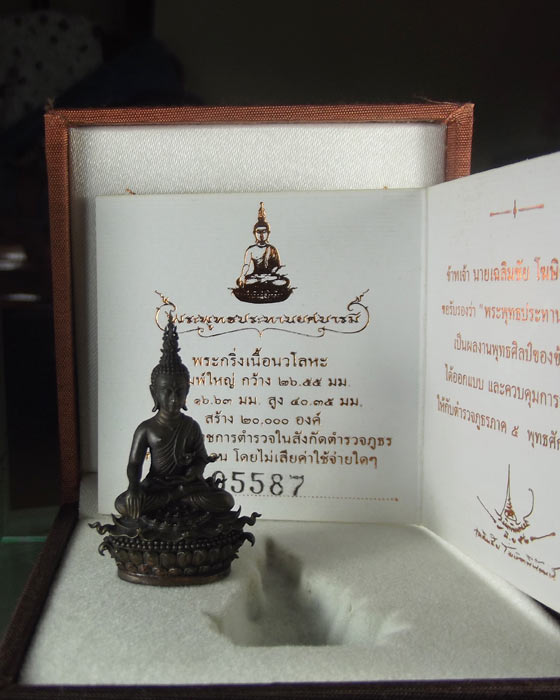 พระพุทธประทานยศบารมี
พระกริ่งเนื้อนวโลหะ
พ์ใหญ่ กว้าง ๒๖.๕๕ มม.
๑๖.๖๓ มม. สูง ๔๐.๓๕ มม.
สร้าง ๒๐,๐๐๐ องค์
ชการตำรวจในสังกัดตำรวจภูธร
น โดยไม่เสียค่าใช้จ่ายใดๆ
05587
ข้าพเจ้า นายเฉลิมชัย โฆษิ
ขอรับรองว่า "พระพุทธประทาน
เป็นผลงานพุทธศิลป์ของข้
ได้ออกแบบ และควบคุมการ
ให้กับตำรวจภูธรภาค ๕ พุทธศั